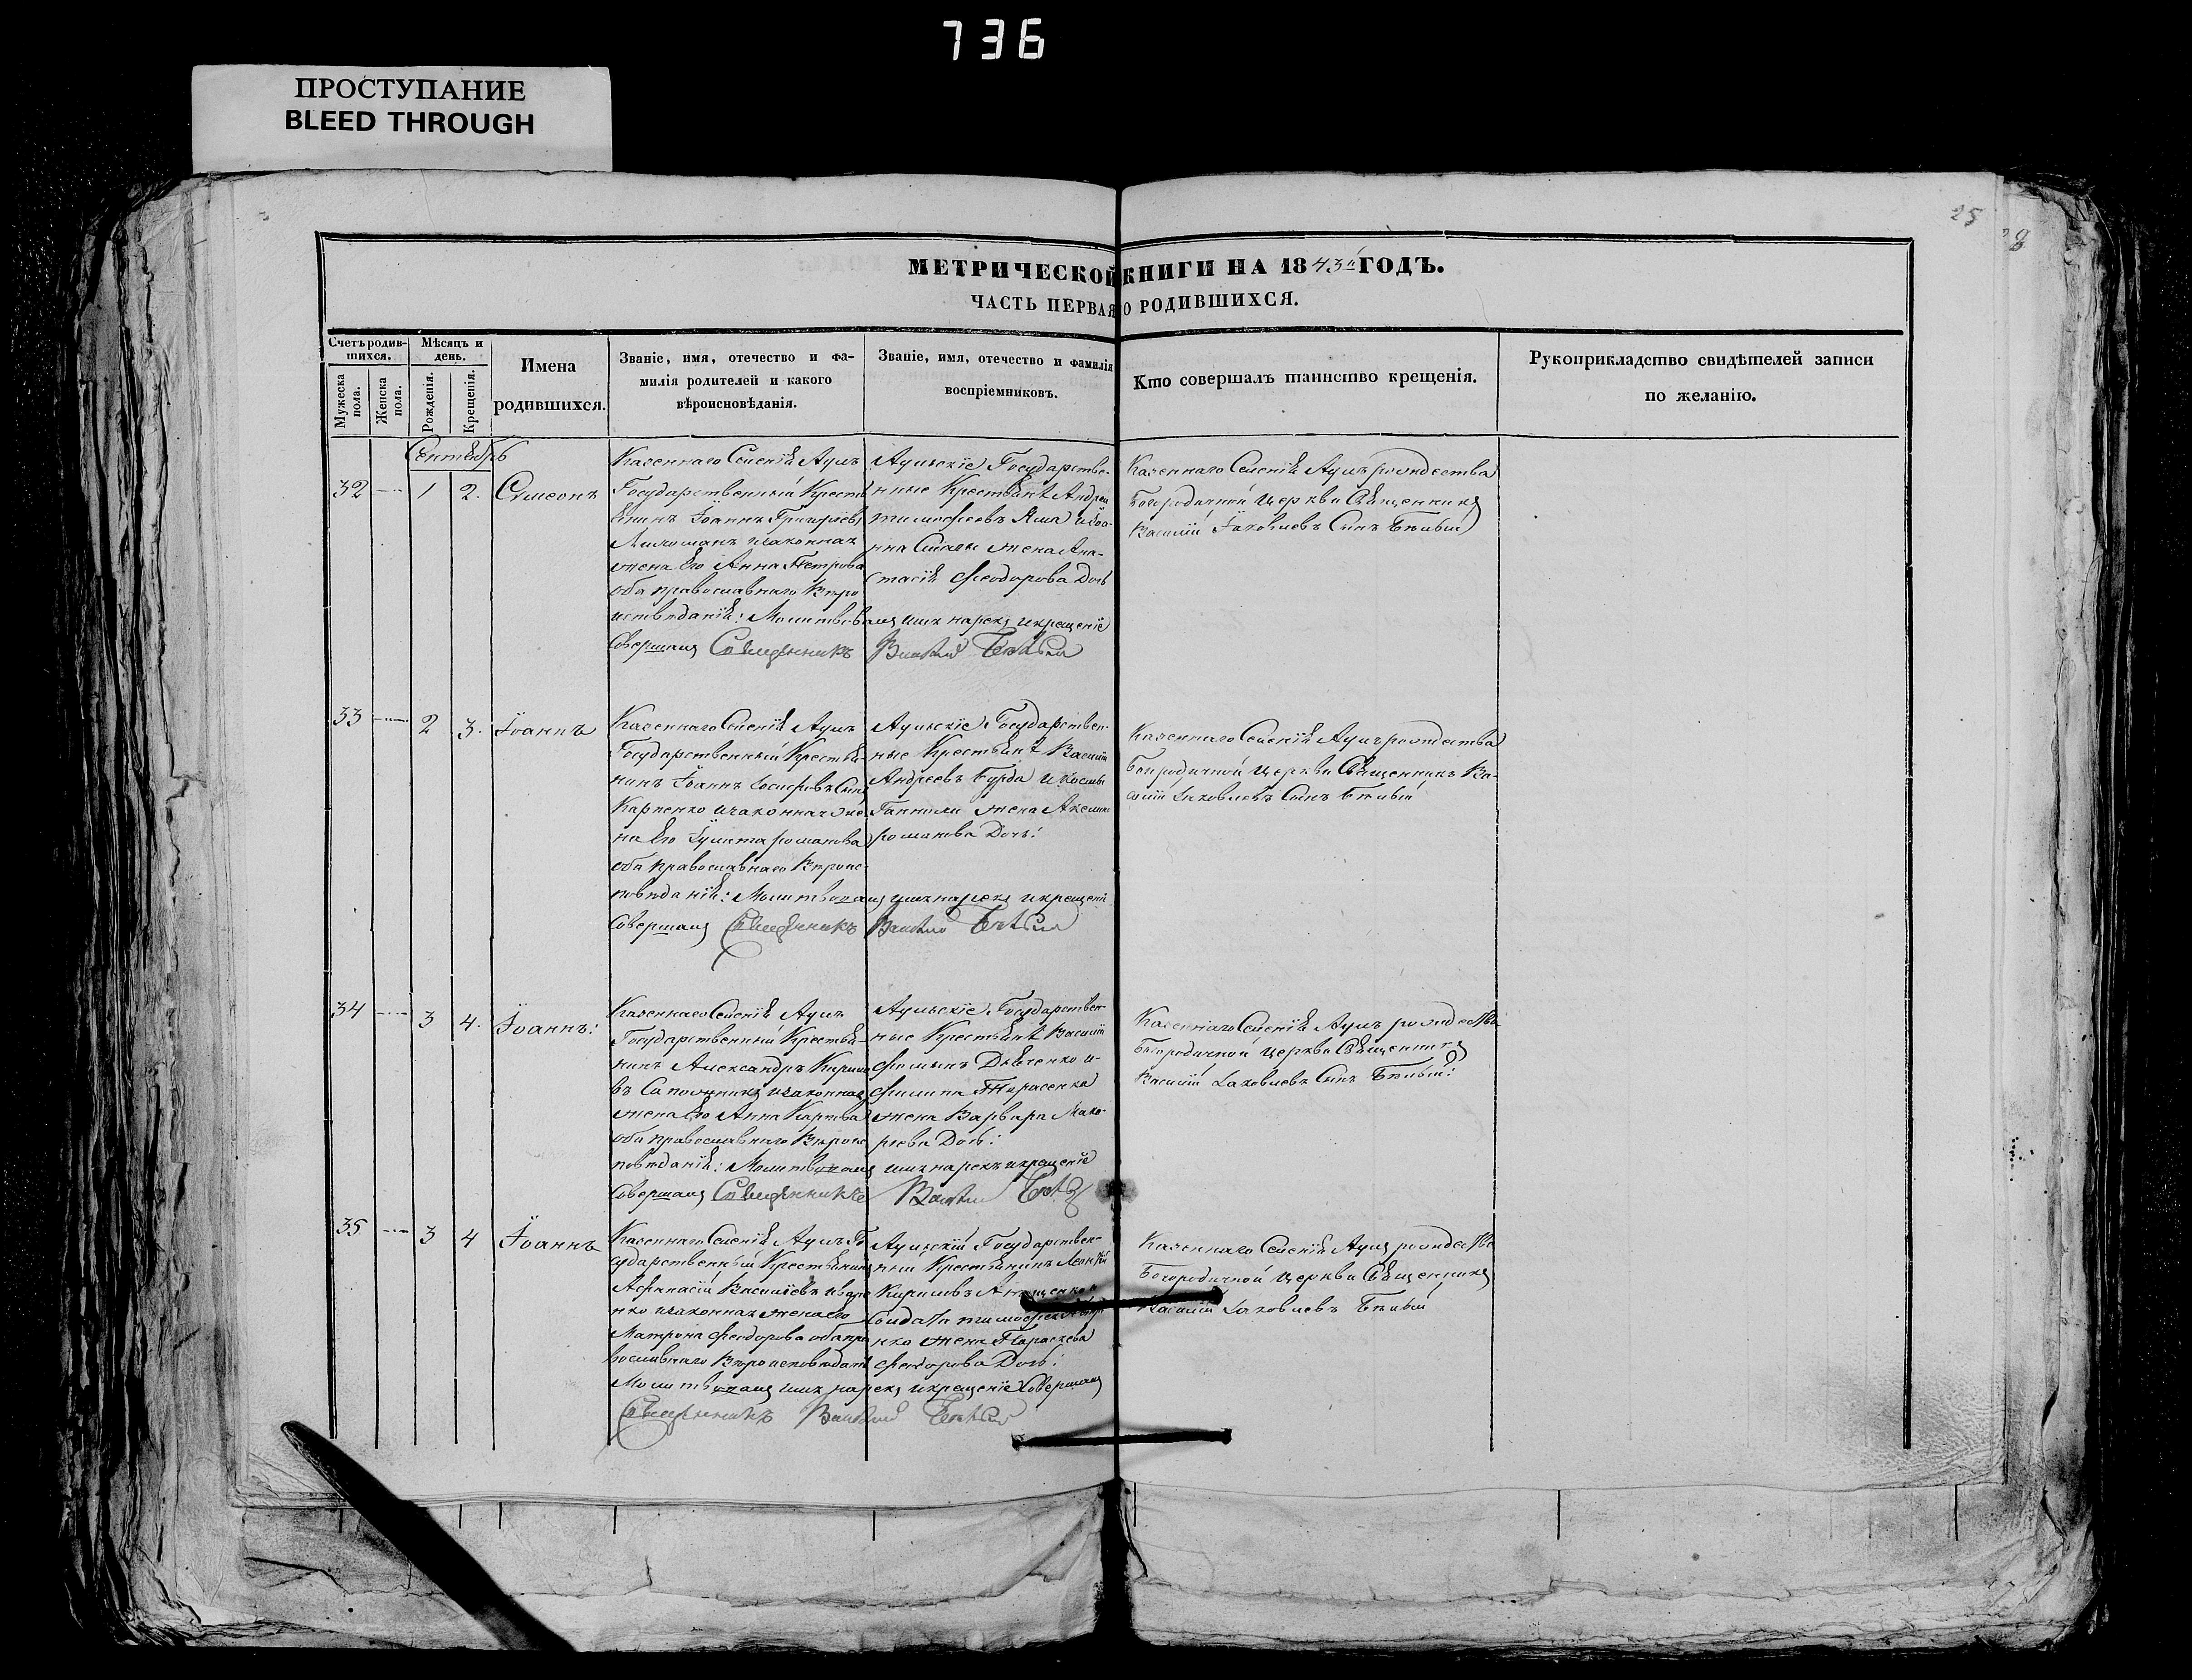 736
ПРОСТУПАНИЕ
BLEED THROUGH
25
МЕТРИЧЕСКОЙ КНИГИ НА 1843й ГОДЪ.
ЧАСТЬ ПЕРВАЯ О РОДИВШИХСЯ.
Счетъ родившихся.
Мужеска пола.
Женска пола.
Мѣсяцъ и день.
Рожденія.
Крещенія.
Имена
родившихся.
Званіе, имя, отечество и фа-
милія родителей и какого
вѣроисновѣданія.
Званіе, имя, отечество и фамилія
воспріемниковъ.
Кто совершалъ таинство крещенія.
Рукоприкладство свидѣтелей записи
по желанію.
Сентябрь
32 1 2. Симеонъ
Казеннаго Селенія
Государственный Крестья
нинъ Іоаннъ Григорьевъ
изаконная
жена Его Анна Петрова
оба православнаго Вѣро
исповѣданія: Молитвовалъ имя нарекъ икрещеніе
Совершалъ Священникъ Василий
Государстве-
нные Крестьяне Андрей
Тимофеевъ
жена Ана-
стасія Феодорова Дочь
Казеннаго Селенія рождества
Богородичной Церкви Священникъ
Василій Іаковлевъ Сынъ Бѣлый
33 2 3. Іоаннъ
Казеннаго Селенія
Государственный Крестья-
нинъ Іоаннъ Іосифовъ Сынъ
Карпенко изаконная же
на Его Іулита романова
оба православнаго Вѣроис-
повѣданія: Молитвовалъ имя нарекъ икрещеніе
Совершалъ Священникъ Василий
Государствен-
ные Крестьяне Василій
Андреевъ Бурда и
жена
романова Дочь:
Казеннаго Селенія рождества
Богородичной Церкви Священникъ Ва-
силій Іаковлевъ Сынъ Бѣлый
34 3 4. Іоаннъ:
Казеннаго Селенія
Государственный Крестья-
нинъ Александръ
изаконная
жена Его Анна Карпова
оба православнаго Вѣроис
повѣданія: Молитвовалъ имя нарекъ икрещеніе
Совершалъ Священникъ Василий
Государствен-
ные Крестьяне Василій
Дьяченко и
Филипа Тарасенка
жена Варвара Мака-
рьева Дочь:
Казеннаго Селенія рождества
Богородичной Церкви Священникъ
Василій Іаковлевъ Сынъ Бѣлый:
35 3 4 Іоаннъ
Казеннаго Селенія Го
сударственный Крестьянинъ
Афанасій Васильевъ
нко изаконная жена его
Матрона Феодорова оба пра
вославнаго Вѣроисповѣданія
Молитвовалъ имя нарекъ икрещеніе Совершалъ
Священникъ Василий
Государствен-
ный Крестьянинъ
Кириловъ
Солдата
нко жена Параскева
Феодорова Дочь:
Казеннаго Селенія рождества
Богородичной Церкви Священникъ
Василій Іаковлевъ Бѣлый